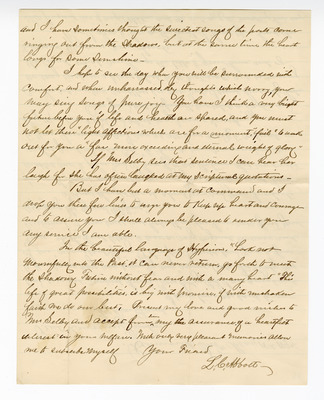 and I have sometimes thought the sweetest songs of the poets come
ringing out from the Shadows, but at the same time the heart
longs for some Sunshine.
I hope to see the day when you will be surrounded with
comfort, and when unharassed by thoughts which worry you
may sing songs of pure joy. You have I think a very bright
future before you if life and health are spared, and you must
not let these "light afflictions which are for a moment, fail" to work
out for you a "far more exceeding and eternal weight of glory"
If Mrs Selby sees that sentence I can hear her
laugh for she has often laughed at my Scriptural quotations.
But I have had a moment at command and I
drop you these few lines to urge you to keep up heart and courage
and to assure you I shall always be pleased to render you
any service I am able.
In the beautiful language of Hyperion, "Look not
Mournfully into the Past, it can never return, go forth to meet
the Shadowy Future without fear and with a manly heart" This
life of great possibilities is big with promise if with
faith we do our best. Present my love and good wishes to
Mrs Selby and accept from me, my the assurance of a heartfelt
interest in your welfare. With many very pleasant memories allow
me to subscribe myself
Your Friend
L. C. Abbott